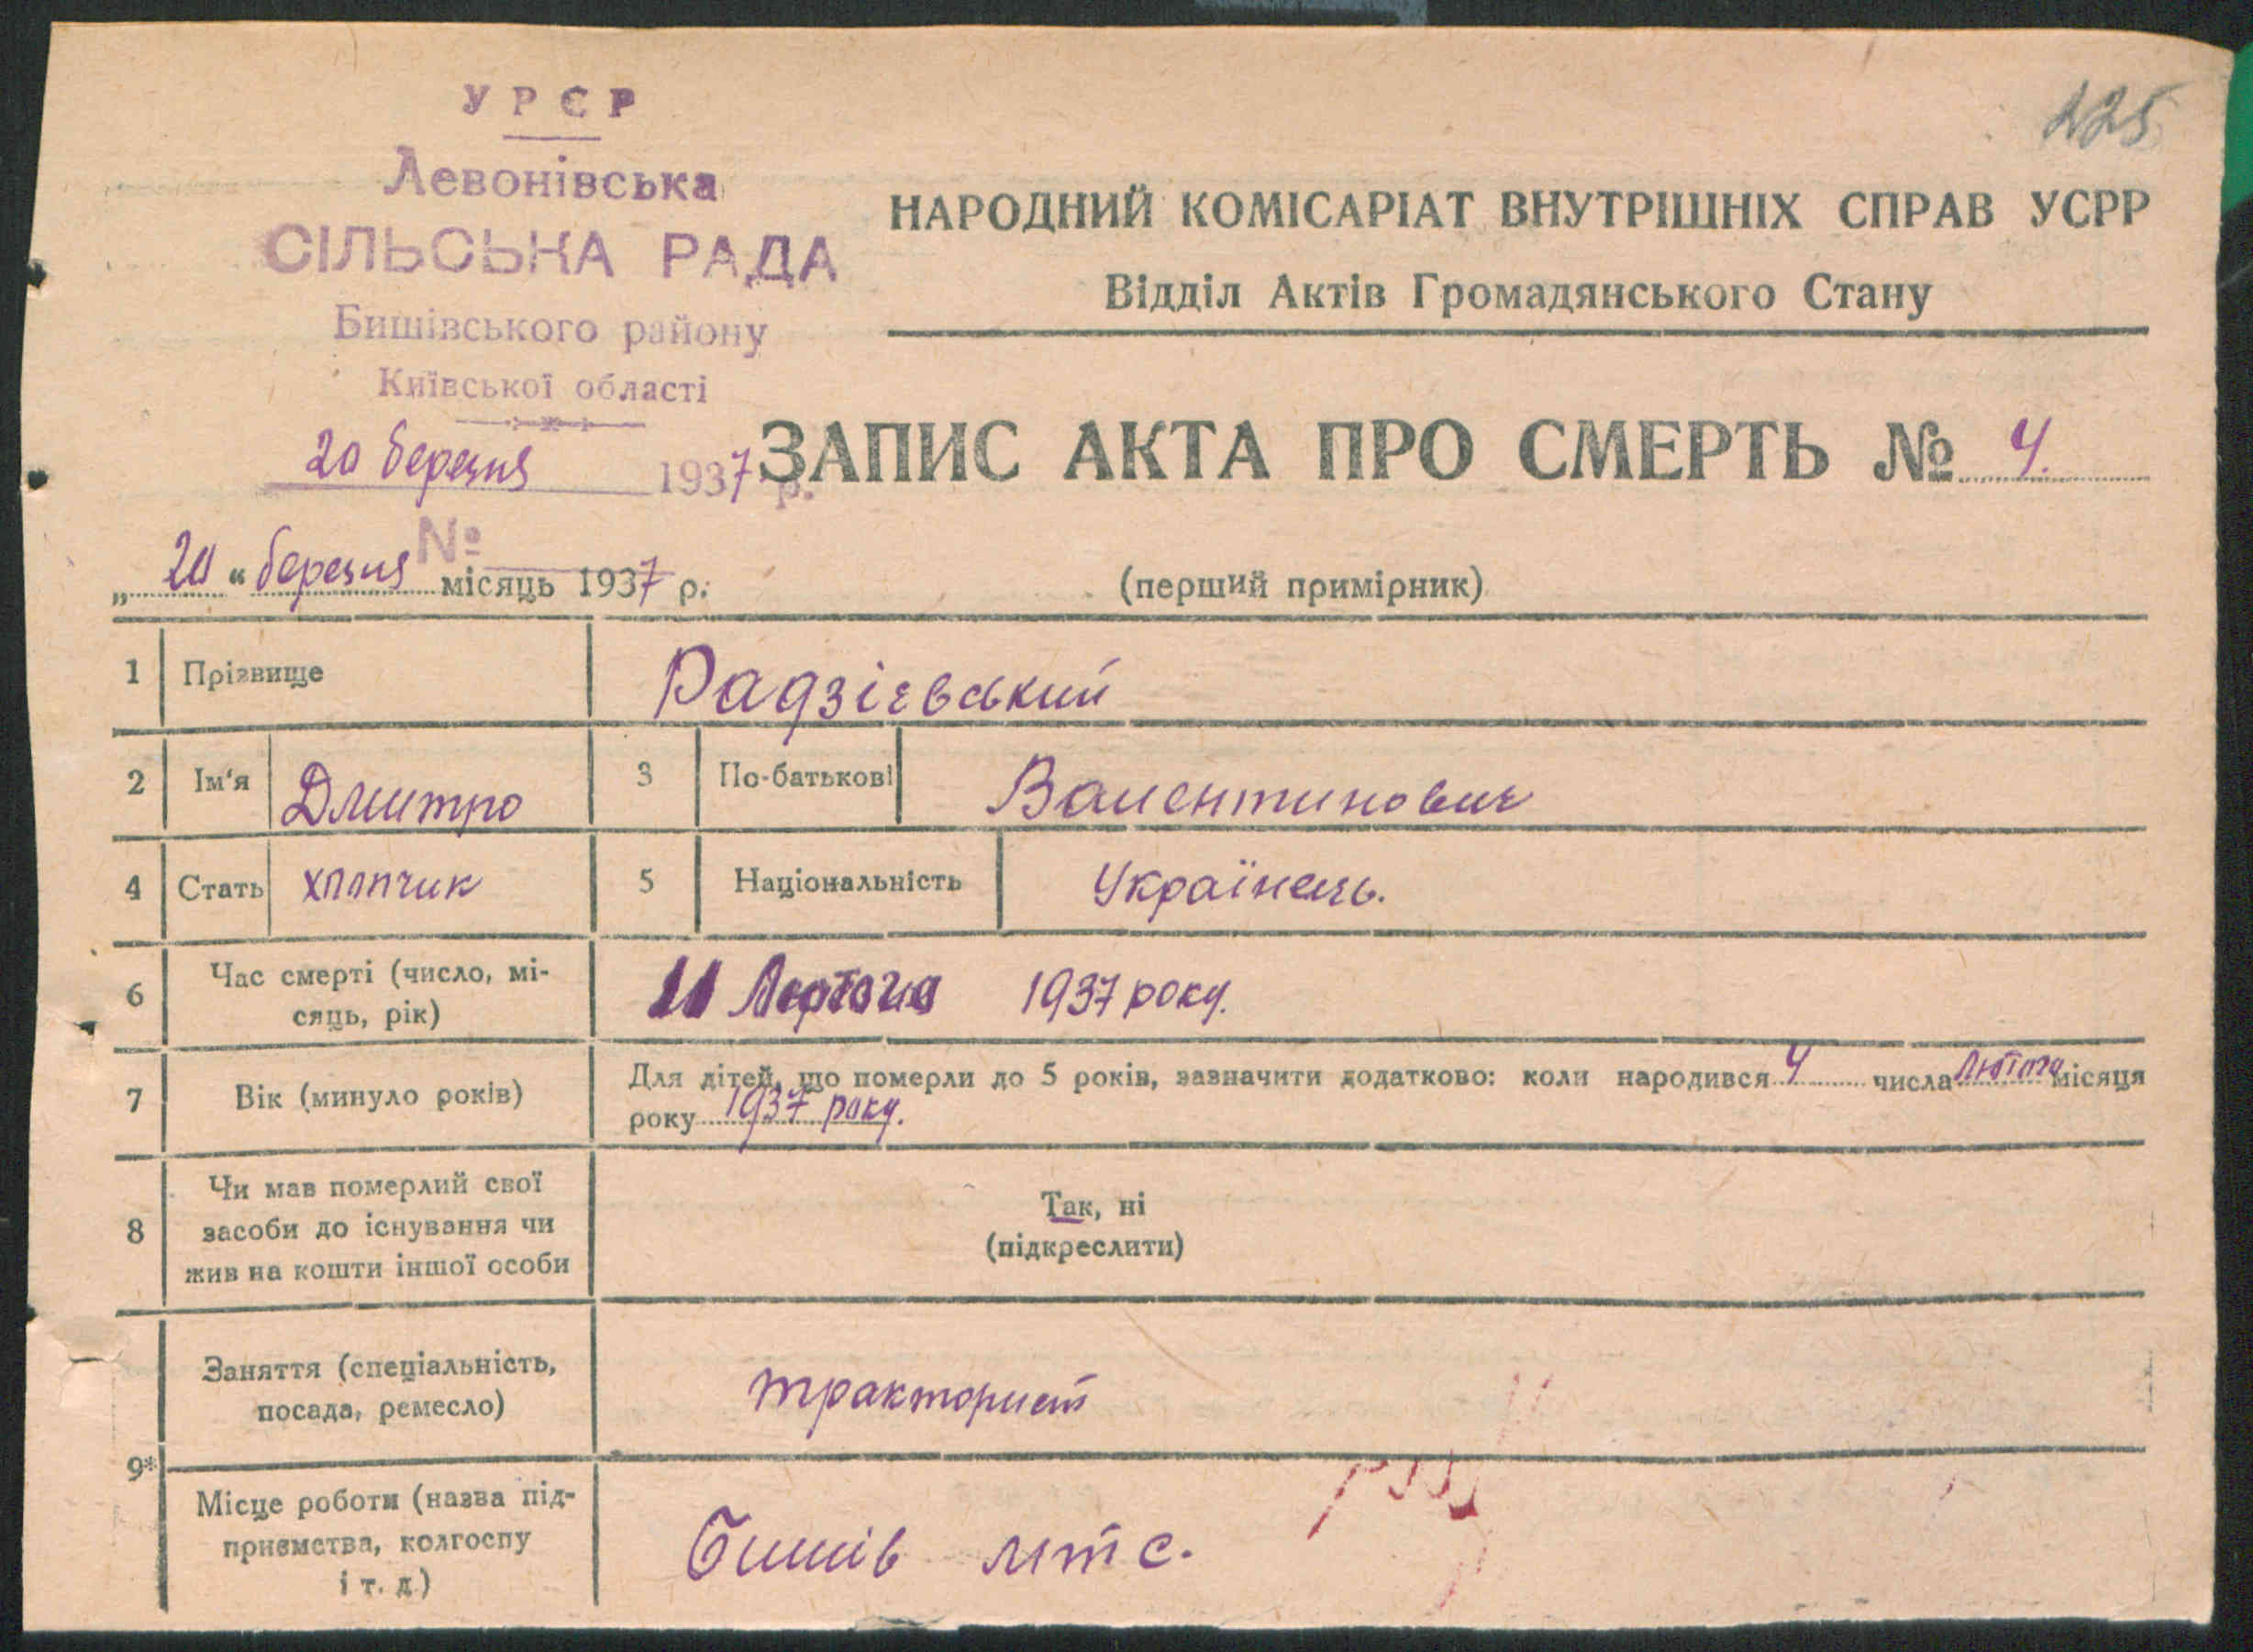 УРСР
Левонівська
СІЛЬСЬКА РАДА
Бишівського району
Київської області
20 березня 1937 р.
№
225
НАРОДНИЙ КОМІСАРІАТ ВНУТРІШНІХ СПРАВ УСРР
Відділ Актів Громадянського Стану
ЗАПИС АКТА ПРО СМЕРТЬ № 4.
„20“ березня місяць 1937 р.
(перший примірник)
1 Прізвище Радзієвський
2 Ім'я Дмитро 3 По-батькові Валентинович
4 Стать хлопчик 5 Національність Українець.
6 Час смерті (число, мі-
сяць, рік) 11 Лютого 1937 року.
7 Вік (минуло років) Для дітей, що померли до 5 років, зазначити додатково: коли народився 4 числа Лютого місяця
року 1937 року.
8 Чи мав померлий свої
засоби до існування чи
жив на кошти іншої особи
Так, ні
(підкреслити)
9* Заняття (спеціальність,
посада, ремесло) тракторист
Місце роботи (назва під-
приємства, колгоспу
і т. д.) Бишів мтс.